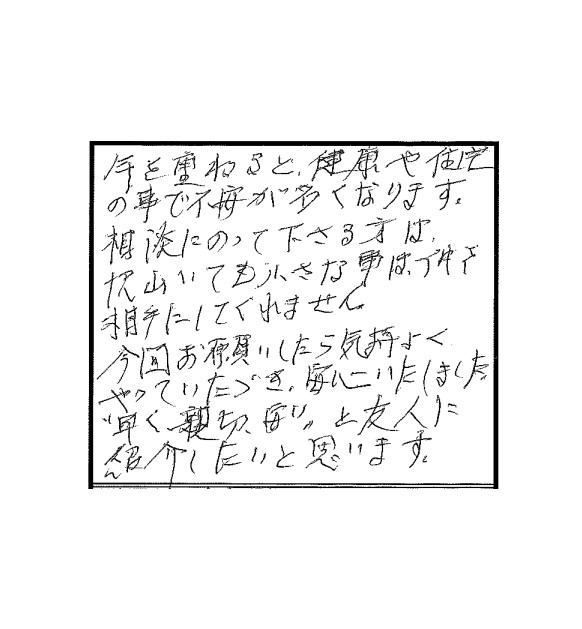 年を重ねると、健康や住宅
の事で不安が多くなります。
相談にのって下さる方は、
沢山いても小さな事は、中々
相手にしてくれません
今回お願いしたら気持よく
やっていただき、安心いたしました
"早く、親切、安い"と友人に
紹介したいと思います。